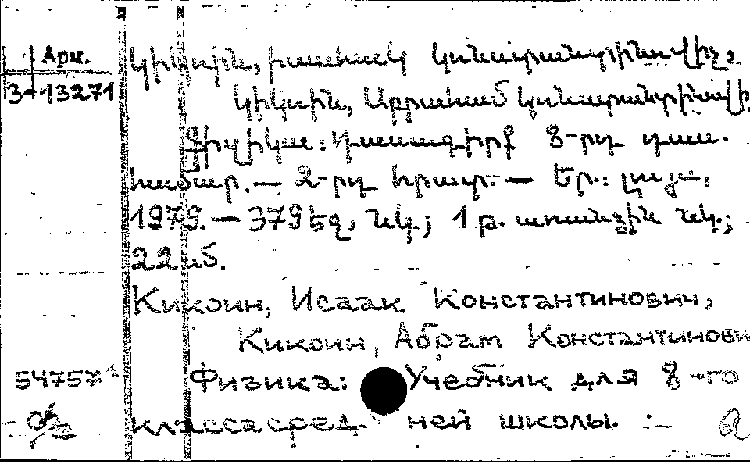 Арм.
Կիկոին, Իսահակ Կոնստանտինովիչ,
3-13271
Կիկոին, Աբրահամ Կոնստանտինովի
Ֆիզիկա: Դասագիրք 8-րդ դաս.
համար.— 2-րդ հրատ.— Եր.: Լույս,
1979.— 379 եզ, նկ.; 1 թ. առանձին նկ.;
22 սմ.
Кикоин, Исаак Константинович,
Кикоин, Абрам Константинови
54757 Физика: Учебник для 8-го
класса сред ней школы. :-